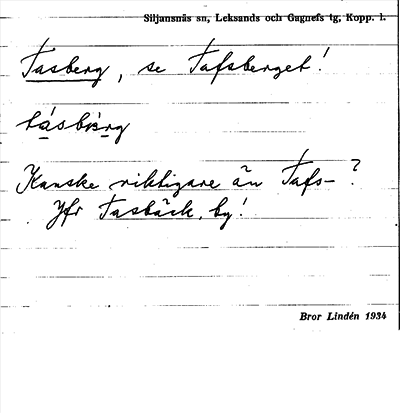 Siljansnäs sn, Leksands och Gagnefs tg, Kopp. l.
Tasberg, se Tafsberget!
Kanske riktigare än Tafs-?
Jfr Tasbäck, by!
Bror Lindén 1934